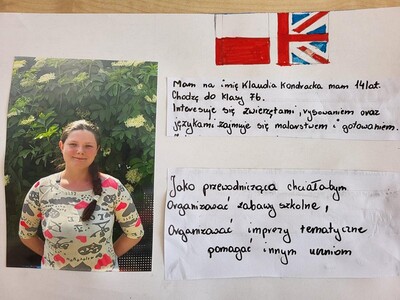 Mam na imię Klaudia Kondracka mam 14 lat.
Chodzę do klasy 7b.
Interesuje się zwierzętami, rysowaniem oraz
językami zajmuje się malarstwem i gotowaniem.
Jako przewodnicząca chciałabym
Organizować zabawy szkolne,
Organizować imprezy tematyczne
pomagać innym uczniom